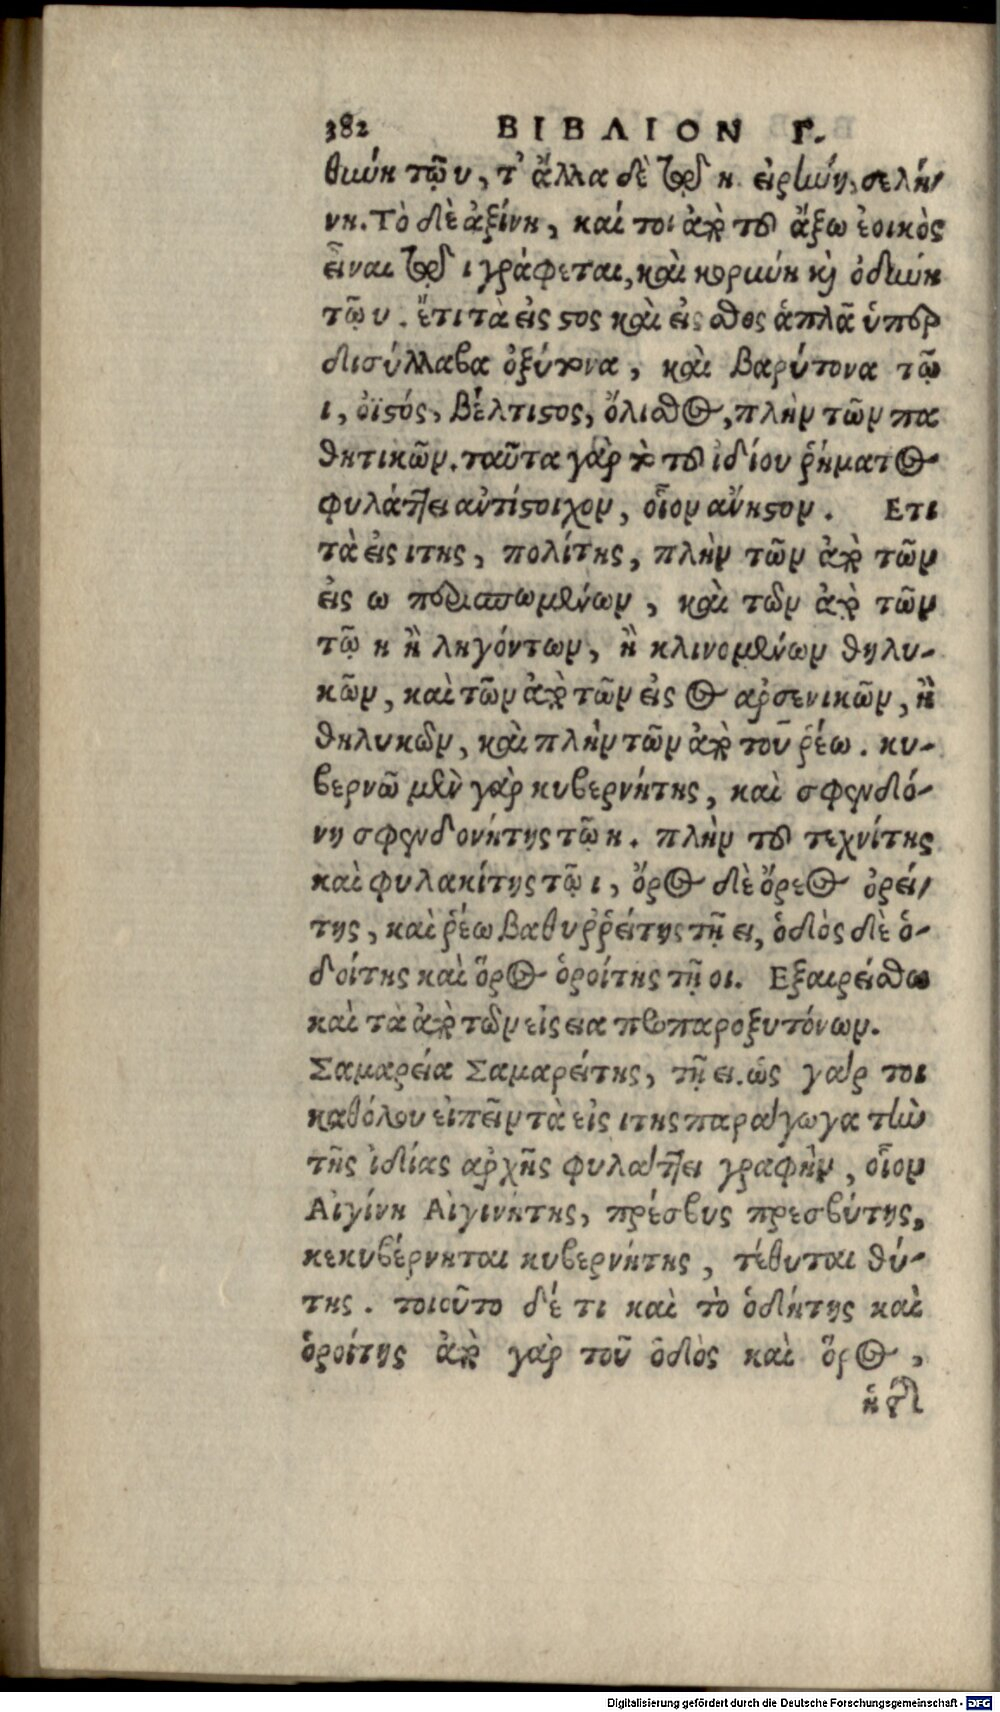 382 ΒΙΒΛΙΟΝ Γ.
θιωύη τῷ υ, τ' ἄλλα δὲ διὰ η. εἰρήνη, σελή-
νη. Τὸ δὲ ἀξίνη, καί τοι ἀπὸ τοῦ ἄξω ἐοικὸς
εἶναι διὰ ι γράφεται, καὶ κορύνη καὶ ὀδύνη
τῷ υ. ἔτι τὰ εἰς στος καὶ εἰς σθος ἁπλᾶ ὑπὲρ
δισύλλαβα ὀξύτονα, καὶ βαρύτονα τῷ
ι, ὀϊστός, βέλτιστος, ὄλισθος, πλὴν τῶν πα
θητικῶν. ταῦτα γὰρ τὸ τοῦ ἰδίου ῥήματος
φυλάττει ἀντίστοιχον, οἷον ἄνηστον. Ετι
τὰ εἰς ιτης, πολίτης, πλὴν τῶν ἀπὸ τῶν
εἰς ω περισπωμένων, καὶ τῶν ἀπὸ τῶν
τῷ η ἢ ληγόντων, ἢ κλινομένων θηλυ-
κῶν, καὶ τῶν ἀπὸ τῶν εἰς ος ἀρσενικῶν, ἢ
θηλυκῶν, καὶ πλὴν τῶν ἀπὸ τοῦ ῥέω. κυ-
βερνῶ μὲν γὰρ κυβερνήτης, καὶ σφενδό-
νη σφενδονήτης τῷ η. πλὴν τοῦ τεχνίτης
καὶ φυλακίτης τῷ ι, ὄρος δὲ ὄρεος ὀρεί-
της, καὶ ῥέω βαθυῤῥείτης τῇ ει, ὁδὸς δὲ ὁ-
δοίτης καὶ ὅρος ὁροίτης τῇ οι. Εξαιρείσθω
καὶ τὰ ἀπὸ τῶν εἰς εια προπαροξυτόνων.
Σαμαρεία Σαμαρείτης, τῇ ει. ὡς γάρ τοι
καθόλου εἰπεῖν τὰ εἰς ιτης παράγωγα τὴν
τῆς ἰδίας ἀρχῆς φυλάττει γραφὴν, οἷον
Αἰγίνη Αἰγινήτης, πρέσβυς πρεσβύτης,
κεκυβέρνηται κυβερνήτης, τέθυται θύ-
της. τοιοῦτο δέ τι καὶ τὸ ὁδήτης καὶ
ὁροίτης ἀπὸ γὰρ τοῦ ὁδὸς καὶ ὅρος,
Digitalisierung gefördert durch die Deutsche Forschungsgemeinschaft - DFG